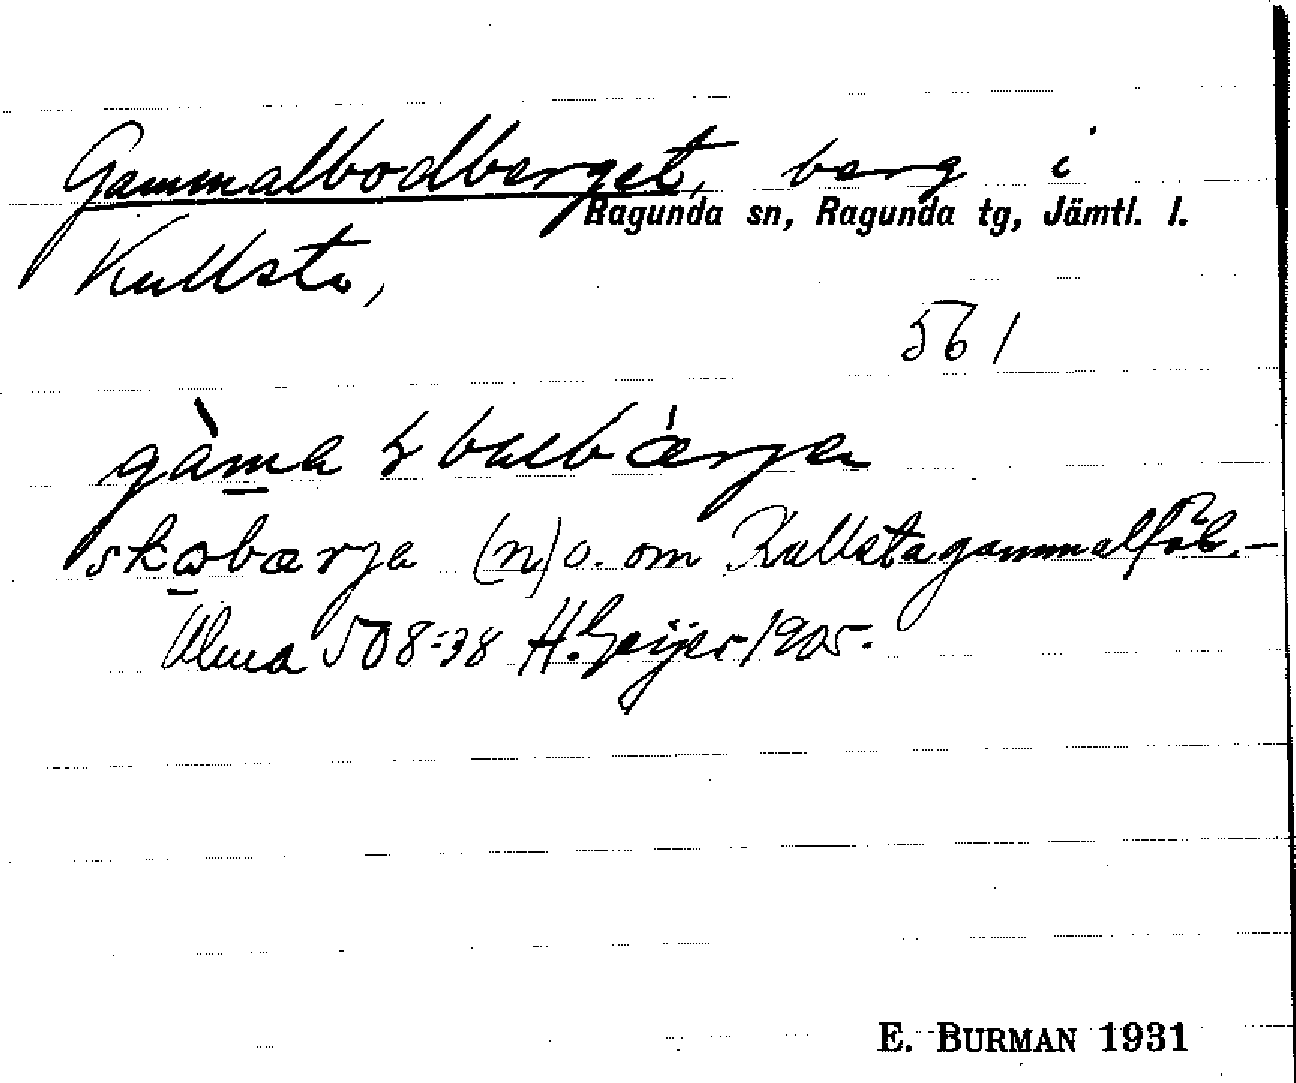 Gammalbodberget, berg i
Ragunda sn, Ragunda tg, Jämtl. l.
Kullsta,
561
(n) o. om Kullstagammalfäb. –
Ulma 508:38 H. Geijer 1905.
E. BURMAN 1931